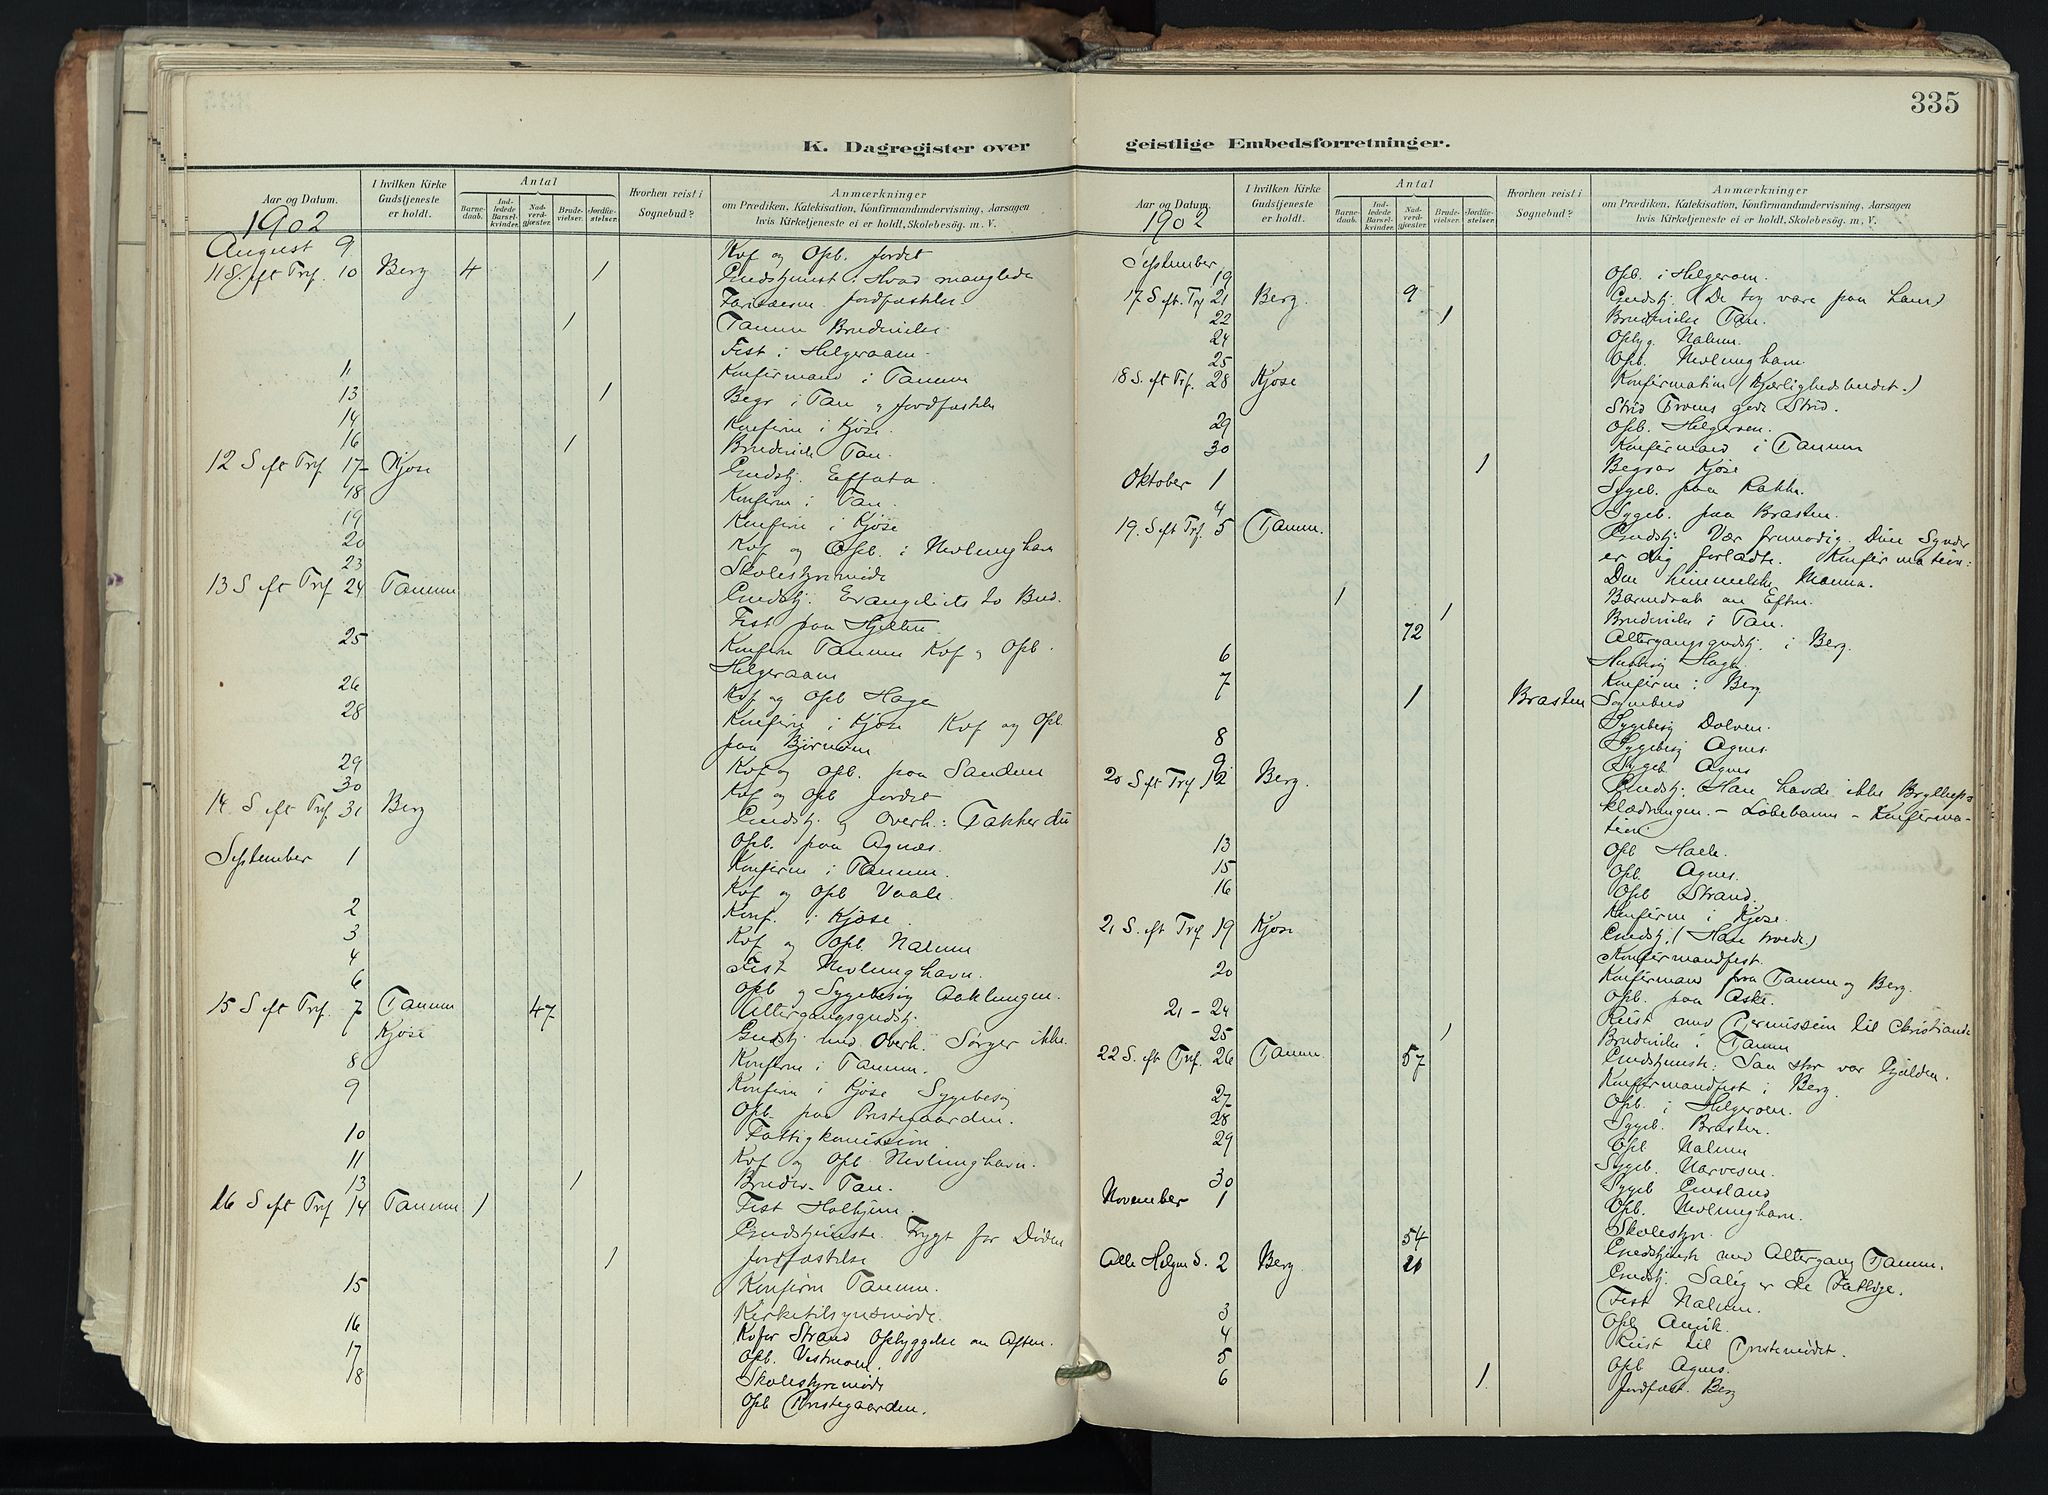 335
K. Dagregister over
Aar og Datum.
I hvilken Kirke Gudstjeneste er holdt.
Antal
Barne-daab.
Ind-ledede Barsel-kvinder.
Nad-verd-gjæster.
Brude-vielser.
Jordfæ-stelser.
Hvorhen reist i Sognebud?
Anmærkninger
om Prædiken, Katekisation, Konfirmandundervisning, Aarsagen
hvis Kirketjeneste ei er holdt, Skolebesög. m. V.
1902
August 9 Kof og Opb. Jordet
11 S. eft Trf. 10 Berg 4 1 Gudstjenest: Hvad manglede
Farisæerne. Jordfæstelse.
1 Tanum Brudevielse
Fest i Helgeraaen.
11 Konfirmand i Tanum
13 1 Begr i Tan og Jordfæstelse
14 Konfirm i Kjose.
16 1 Brudevielse Tan.
12 S eft Trf 17 Kjose Gudstj. Effata.
18 Konfirm i Tan.
19 Konfirm i Kjose
20 Kof og Opb. i Nevlunghavn
23 Skolestyremøde
13 S eft Trf 24 Tanum Gudstj. Evangeliets to Bud.
Fest paa Hjelten
25 Konfirm Tanum Kof og Opb.
Helgeraaen
26 Kof og Opb Hage
28 Konfirm i Kjose Kof og Opb.
paa Bjørnøen
29 Kof og Opb. paa Sanden
30 Kof og Opb Jordet
14 S. eft Trf. 31 Berg Gudstj. og Overh.: Takker du
Opb. paa Agnæs.
September 1 Konfirm i Tanum.
Kof og Opb Vaale
2 Konf. i Kjose.
3 Kof og Opb. Nalum
4 Fest Nevlunghavn.
6 Opb og Sygebesøg Aaklungen.
15 S eft Trf. 7 Tanum 47 Altergangsgudstj.
7 Kjose Gudstj med Overh. Sørger ikke.
8 Konfirm i Tanum.
9 Konfirm i Kjose Sygebesøg
Opb. paa Prestegaarden.
10 Fattigkomission
11 Kof og Opb. Nevlunghavn.
13 1 Brudev. Tan.
16 S eft Trf 14 Tanum 1 Fest Holhjem.
Gudstjeneste. Frygt for Døden
1 Jordfæstelse
15 Konfirm Tanum.
Kirketilsynsmøde.
16 Kofor Strand Opbyggelse om Aften.
17 Opb. Vestmoen.
18 Skolestyremøde
Opb Prestegaarden.
geistlige Embedsforretninger.
Aar og Datum.
I hvilken Kirke Gudstjeneste er holdt.
Antal
Barne-daab.
Ind-ledede Barsel-kvinder.
Nad-verd-gjæster.
Brude-vielser.
Jordfæ-stelser.
Hvorhen reist i Sognebud?
Anmærkninger
om Prædiken, Katekisation, Konfirmandundervisning, Aarsagen
hvis Kirketjeneste ei er holdt, Skolebesög m. V.
1902
September 19 Opb. i Helgeroen.
17 S eft. Trf 21 Berg. 9 Gudstj. (De tog vare paa ham)
22 1 Brudevielse Tan.
24 Opbyg. Nalum.
25 Opb. Nevlunghavn.
18 S. eft Trf. 28 Kjose Konfirmation (Kjærlighedsbudet.)
Strid Troens gode Strid.
29 Opb. Helgeroen.
30 Konfirmand i Tanum
1 Begrav Kjose
Oktober 1 Sygeb. paa Rakke.
4 Sygeb. paa Brasten.
19. S eft Trf. 5 Tanum. Gudstj: Vær frimodig. Dine Synder
er dig forladte. Konfirmation:
Den himmelske Manna.
1 Barnedaab om Eftm.
1 Brudevielse i Tan.
72 Altergangsgudstj. i Berg.
6 Husbesøg Hage.
7 Konfirm i Berg
1 Brasten Sognebud
Sygebesøg Dolven.
8 Sygebesøg Agnes.
9 Sygeb. Agnes
20 S eft Trf 12 Berg. Gudstj: Han havde ikke Bryllups-
klædningen. – Løbebane – Konfirma-
tion.
13 Opb Hach.
15 Opb. Agnes.
16 Opb Strand.
Konfirm i Kjose.
21 S. eft Trf 19 Kjose Gudstj. (Hans troede.)
Konfirmandfest.
20 Konfirmand fra Tanum og Berg.
Opb. paa Aske.
21 – 24 Reist med Permission til Christiania
25 1 Brudevielse i Tanum
22 S. eft Trf. 26 Tanum. 57 Gudstjeneste: Saa stor var Gjælden.
Konfirmandfest i Berg.
27 Opb. i Helgeroen.
28 Sygeb. Brasten.
29 Opb Nalum
Sygeb. Narvesen.
30 Sygeb Omsland
November 1 Opb. Nevlunghavn.
Skolestyr.
54 Gudstjenest med Altergang Tanum.
Alle Helgen S. 2 Berg. 21 Gudstj. Salig er de Fattige.
Fest Nalum.
3 Opb Anvik.
4 Reist til Prestemødet.
5 Opb Agnes.
6 1 Jordfæst. Berg